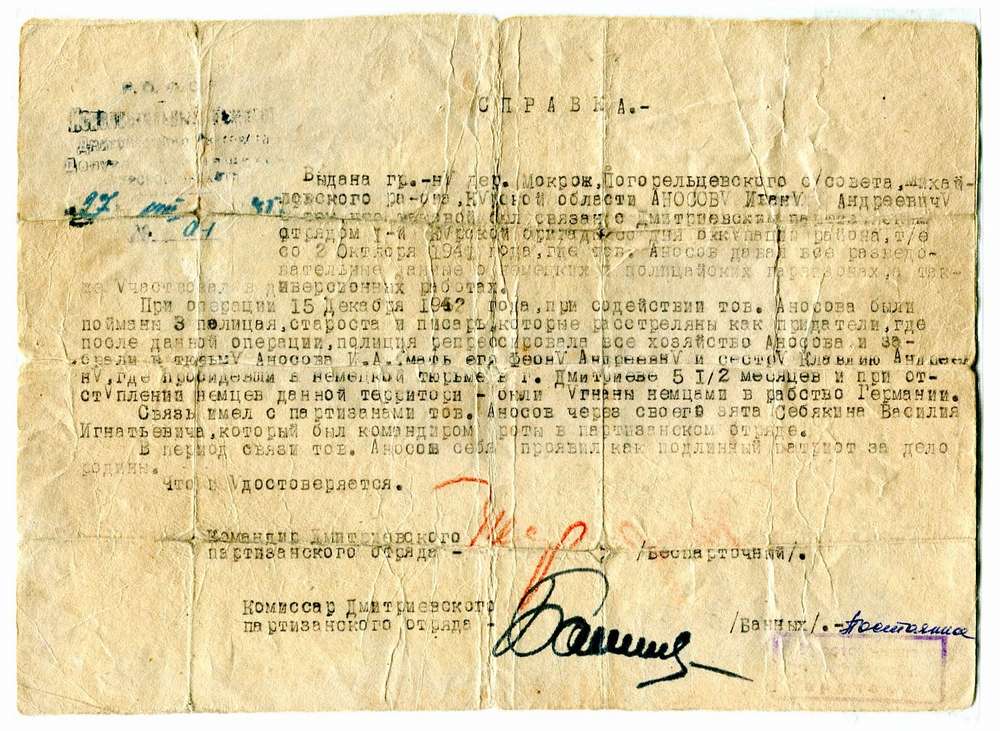 СПРАВКА.-
27
45
№ 91
Выдана гр.-нУ дер. Мокрож, Погорельцевского с/совета, Михай-
ловского ра-она, КУрской области АНОСОВУ ИванУ АндреевичУ
был связан с Дмитриевским
отрядом I-й КУрской бригады со дня оккУпации района, т/е
со 2 Октября 1941 года, где тов. Аносов давал все разведо-
вательные данные о немецких и полицайских гарнизонах, а так-
же Участвовал в диверсионных работах.
При операции 15 Декабря 1942 года, при содействии тов. Аносова были
пойманы 3 полицая, староста и писарь, которые расстреляны как придатели, где
после данной операции, полиция репрессировала все хозяйство Аносова и за-
брали в тюрьмУ Аносова И.А. мать его ФеонУ АндреевнУ и сестрУ Клавдию Андреев
нУ, где просидевши в немецкой тюрьме в г. Дмитриеве 5 I/2 месяцев и при от-
стУплении немцев данной территори - были Угнаны немцами в рабство Германии.
Связь имел с партизанами тов. Аносов через своего зятя Себякина Василия
Игнатьевича, который был командиром роты в партизанском отряде.
В период связи тов. Аносов себя проявил как подлинный патриот за дело
родины.
Что и Удостоверяется.
Командир Дмитриевского
партизанского отряда - /Беспарточный/.
Комиссар Дмитриевского
партизанского отряда - /Банных/.-